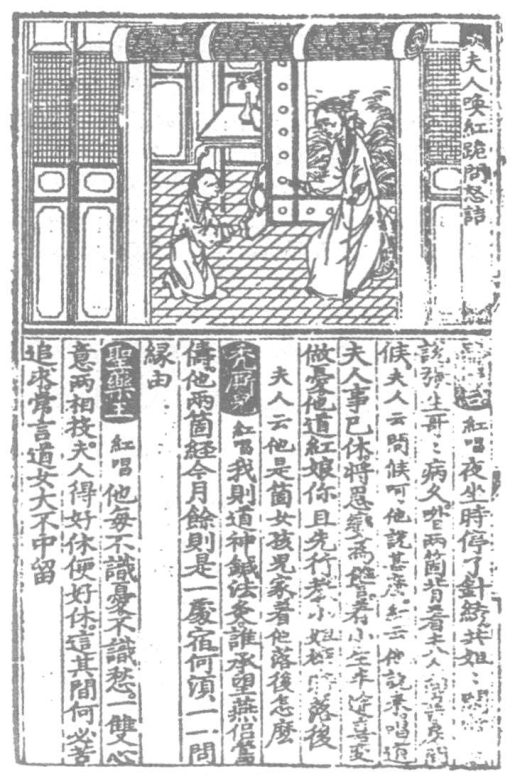 夫人喚紅跪問怒詰
紅唱夜坐時停了針綉共姐〻閑
張生哥〻病久咱兩箇背着夫人
候夫人云問候呵他說甚麽紅云他說來唱道
夫人事已休將恩變爲讎着小生半途喜變
做憂他道紅娘你且先行教小姐權時落後
夫人云他是箇女孩兒家着他落後怎麽
禿厮兒 紅唱我則道神鍼法灸誰承望燕侣鶯
儔他兩箇経今月餘則是一處宿何須一一問
縁由
聖藥王 紅唱他每不識憂不識愁一雙心
意兩相投夫人得好休便好休這其間何必苦
追求常言道女大不中留